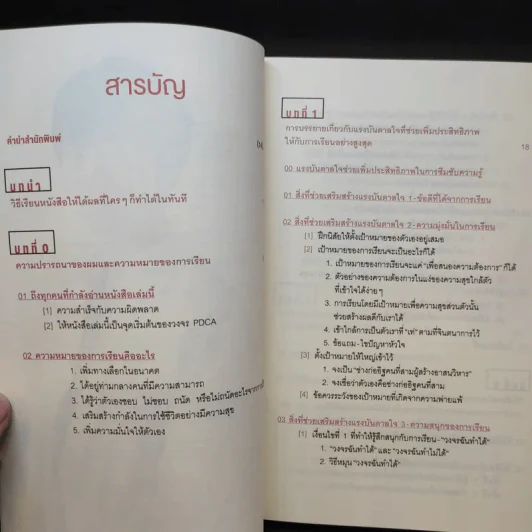 สารบัญ
คำนำสำนักพิมพ์
บทนำ
วิธีเรียนหนังสือให้ได้ผลที่ใครๆ ก็ทำได้ในทันที
บทที่ 0
ความปรารถนาของผมและความหมายของการเรียน
01 ถึงทุกคนที่กำลังอ่านหนังสือเล่มนี้
[1] ความสำเร็จกับความผิดพลาด
[2] ให้หนังสือเล่มนี้เป็นจุดเริ่มต้นของวงจร PDCA
02 ความหมายของการเรียนคืออะไร
1. เพิ่มทางเลือกในอนาคต
2. ได้อยู่ท่ามกลางคนที่มีความสามารถ
3. ได้รู้ว่าตัวเองชอบ ไม่ชอบ ถนัด หรือไม่ถนัดอะไรจาก
4. เสริมสร้างกำลังในการใช้ชีวิตอย่างมีความสุข
5. เพิ่มความมั่นใจให้ตัวเอง
บทที่ 1
การบรรยายเกี่ยวกับแรงบันดาลใจที่ช่วยเพิ่มประสิทธิภาพ
ให้กับการเรียนอย่างสูงสุด 18
00 แรงบันดาลใจช่วยเพิ่มประสิทธิภาพในการซึมซับความรู้
01 สิ่งที่ช่วยเสริมสร้างแรงบันดาลใจ 1-ข้อดีที่ได้จากการเรียน
02 สิ่งที่ช่วยเสริมสร้างแรงบันดาลใจ 2-ความมุ่งมั่นในการเรียน
[1] ฝึกนิสัยให้ตั้งเป้าหมายของตัวเองอยู่เสมอ
[2] เป้าหมายของการเรียนจะเป็นอะไรก็ได้
1. เป้าหมายของการเรียนจะแค่ "เพื่อสนองความต้องการ" ก็ได้
2. ตัวอย่างของความต้องการในแง่ของความสุขใกล้ตัว
ที่เข้าใจได้ง่ายๆ
3. การเรียนโดยมีเป้าหมายเพื่อความสุขส่วนตัวนั้น
ช่วยสร้างผลดีกับเราได้
4. เข้าใกล้การเป็นตัวเราที่ "เท่" ตามที่จินตนาการไว้
5. ข้อแถม-ไขปัญหาหัวใจ
[3] ตั้งเป้าหมายให้ใหญ่เข้าไว้
1. จงเป็น "ช่างก่ออิฐคนที่สามผู้สร้างอาสนวิหาร"
2. จงเชื่อว่าตัวเองคือช่างก่ออิฐคนที่สาม
[4] ข้อควรระวังของเป้าหมายที่เกิดจากความพ่ายแพ้
03 สิ่งที่ช่วยเสริมสร้างแรงบันดาลใจ 3-ความสนุกของการเรียน
[1] เงื่อนไขที่ 1 ที่ทำให้รู้สึกสนุกกับการเรียน-"วงจรฉันทำได้"
1. "วงจรฉันทำได้" และ "วงจรฉันทำไม่ได้"
2. วิธีหมุน "วงจรฉันทำได้"